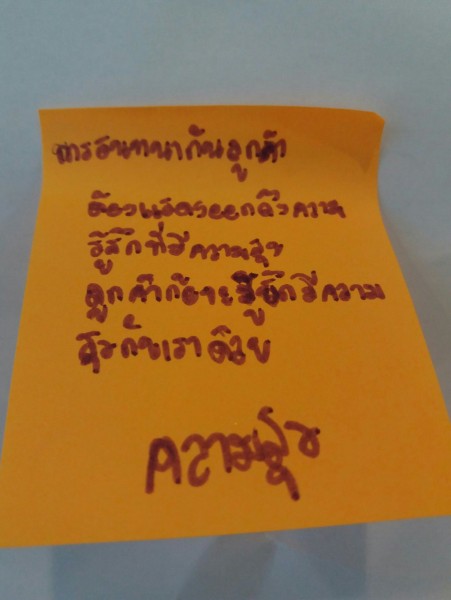 การสนทนากับลูกค้า
ต้องแสดงออกถึงความ
รู้สึกที่มีความสุข
ลูกค้าก็จะรู้สึกมีความ
สุขกับเราด้วย
ความสุข